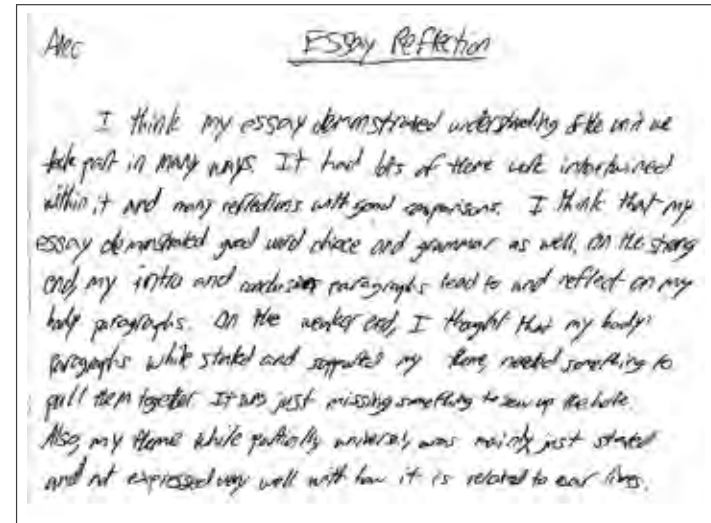 Alec
Essay Reflection
I think my essay demonstrated understanding of the unit we
took part in many ways. It had lots of theme well intertwined
within it and many reflections with good comparisons. I think that my
essay demonstrated good word choice and grammar as well. On the strong
end, my intro and conclusion paragraphs lead to and reflect on my
body paragraphs. On the weaker end, I thought that my body
paragraphs while stated and supported my theme, needed something to
pull them together. It was just missing something to sew up the hole.
Also, my theme while partially universal, was mainly just stated
and not expressed very well with how it is related to our lives.